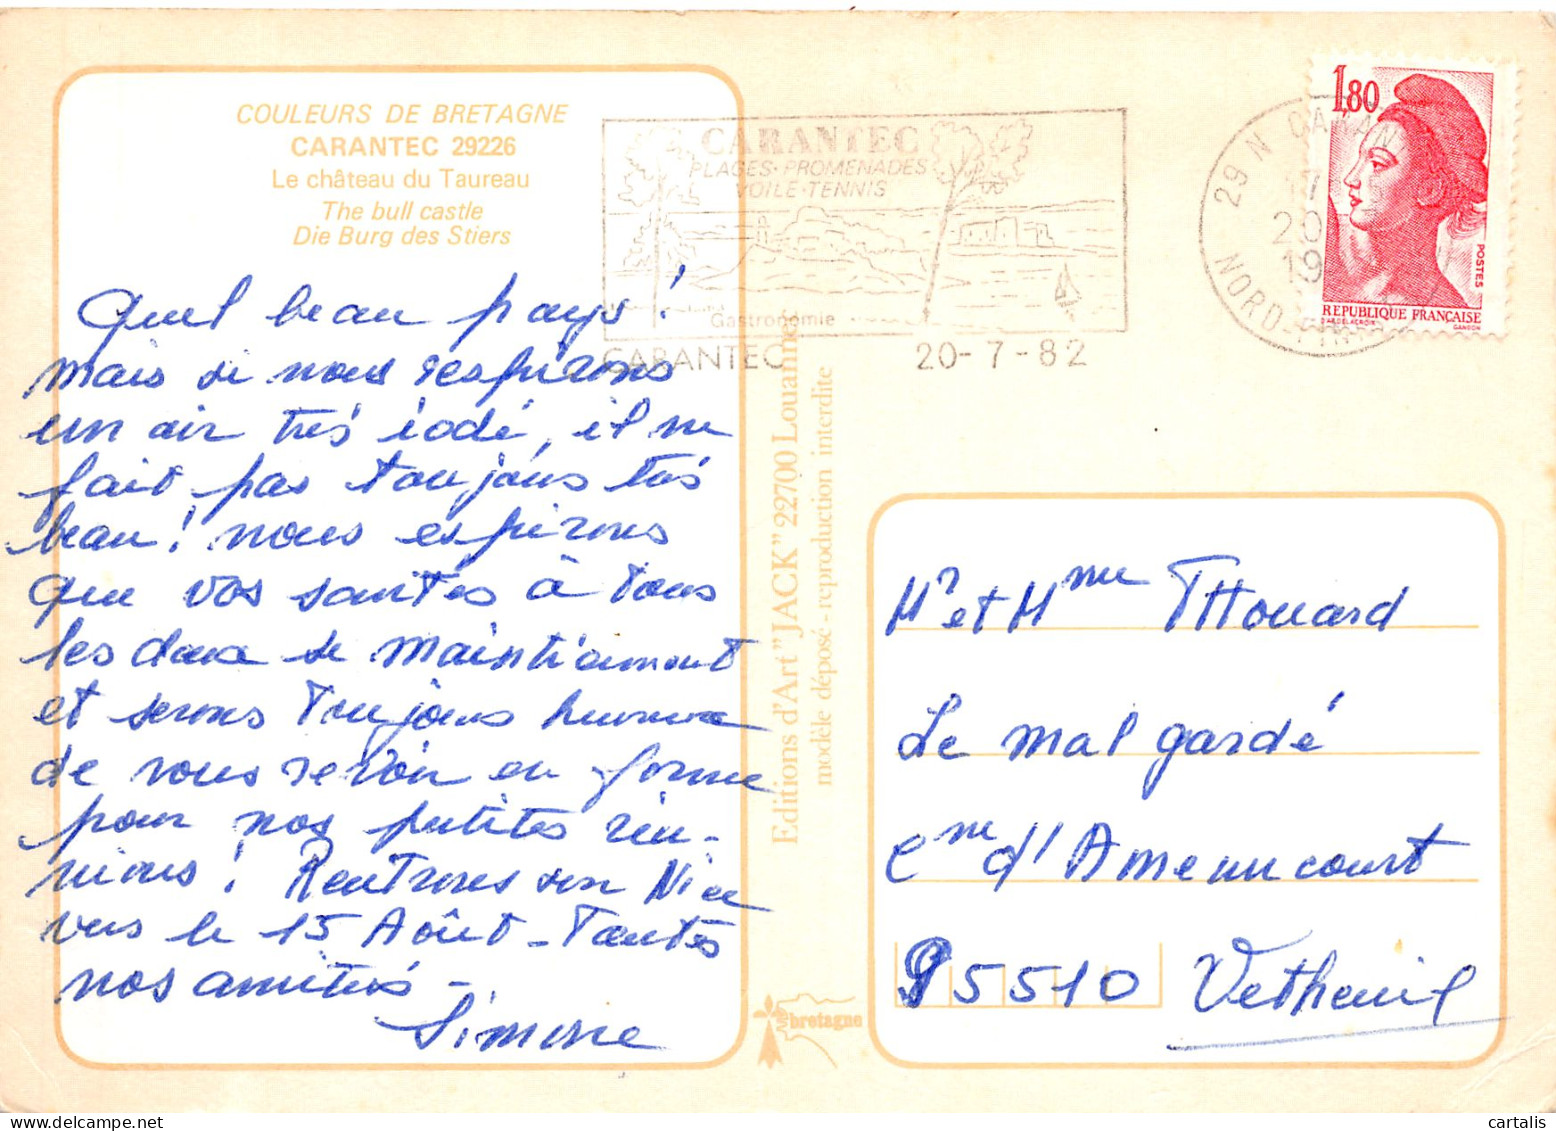 COULEURS DE BRETAGNE
CARANTEC 29226
Le château du Taureau
The bull castle
Die Burg des Stiers
Quel beau pays !
mais si nous respirons
un air très iodé, il ne
fait pas toujours très
beau ! nous espérons
que vos santés à tous
les deux se maintiennent
et serons toujours heureux
de vous revoir en forme
pour nos petites réu-
nions ! Rentrons sur Nice
vers le 15 Août - Toutes
nos amitiés -
Simone
CARANTEC
PLAGES·PROMENADES
VOILE·TENNIS
Gastronomie
CARANTEC 20-7-82
29 N CARAN
17
20
19
NORD-FINIS
1,80
POSTES
REPUBLIQUE FRANÇAISE
D'AP. DELACROIX GANDON
Editions d'Art "JACK" 22700 Louannec
modèle déposé - reproduction interdite
bretagne
Mr et Mme THouard
Le mal gardé
Cne d'Amenucourt
95510 Vetheuil
cartalis